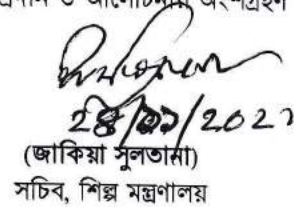 প্রদান ও আলোচনায় অংশগ্রহন
2022
(জাকিয়া সুলতানা)
সচিব, শিল্প মন্ত্রণালয়